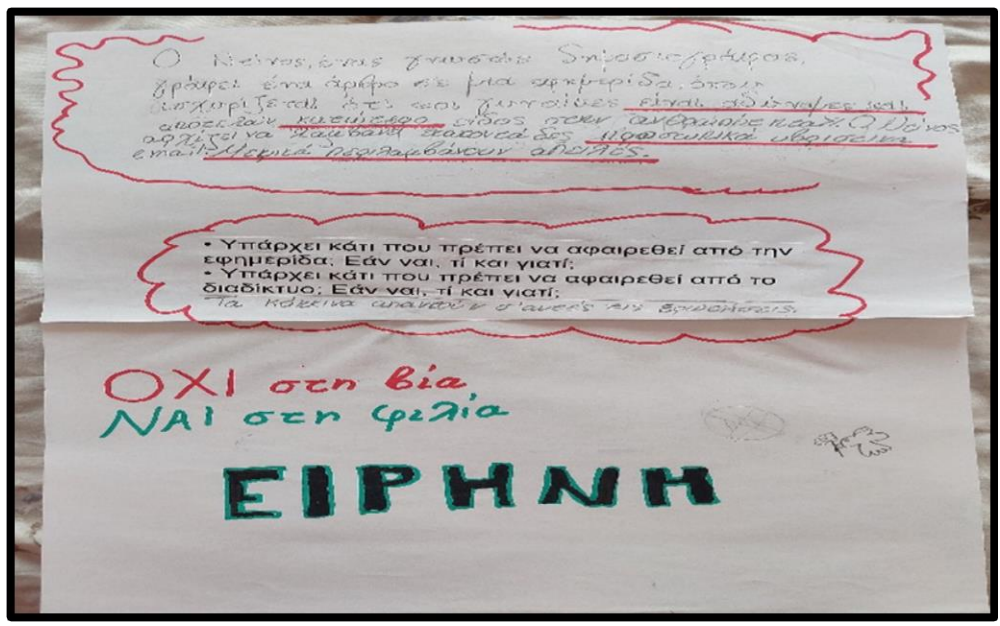 Ο Ντίνος, ένας γνωστός δημοσιογράφος,
γράφει ένα άρθρο σε μια εφημερίδα, όπου
ισχυρίζεται ότι οι γυναίκες είναι αδύναμες και
αποτελούν κατώτερο είδος στην ανθρωπότητα. Ο Ντίνος
αρχίζει να λαμβάνει προσωπικά υβριστικά
email. Μερικά περιλαμβάνουν απειλές.
• Υπάρχει κάτι που πρέπει να αφαιρεθεί από την
εφημερίδα; Εάν ναι, τί και γιατί;
• Υπάρχει κάτι που πρέπει να αφαιρεθεί από το
διαδίκτυο; Εάν ναι, τί και γιατί;
Τα κόκκινα απαντούν σ'αυτές τις ερωτήσεις.
ΟΧΙ στη βία
ΝΑΙ στη φιλία
ΕΙΡΗΝΗ